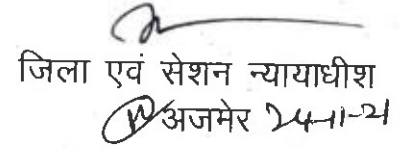 जिला एवं सेशन न्यायाधीश
अजमेर 24-11-21